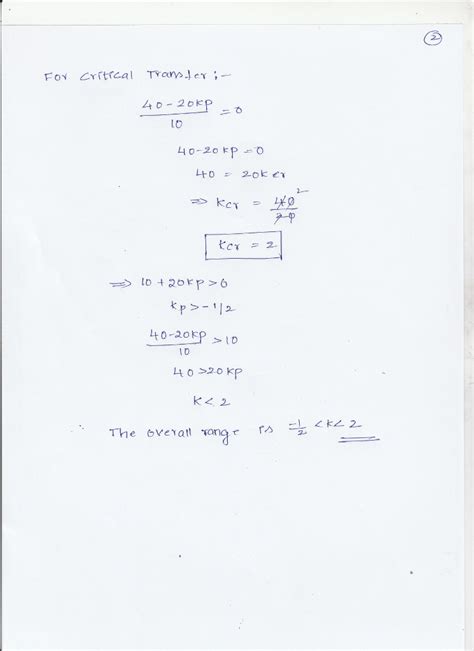 2
For Critical Transfer :-
40-20kp / 10 = 0
40-20kp = 0
40 = 20kcr
⇒ kcr = 40 / 20 2
kcr = 2
⇒ 10+20kp>0
kp>-1/2
40-20kp / 10 >10
40>20kp
k<2
∴ The overall range is -1/2 <k<2